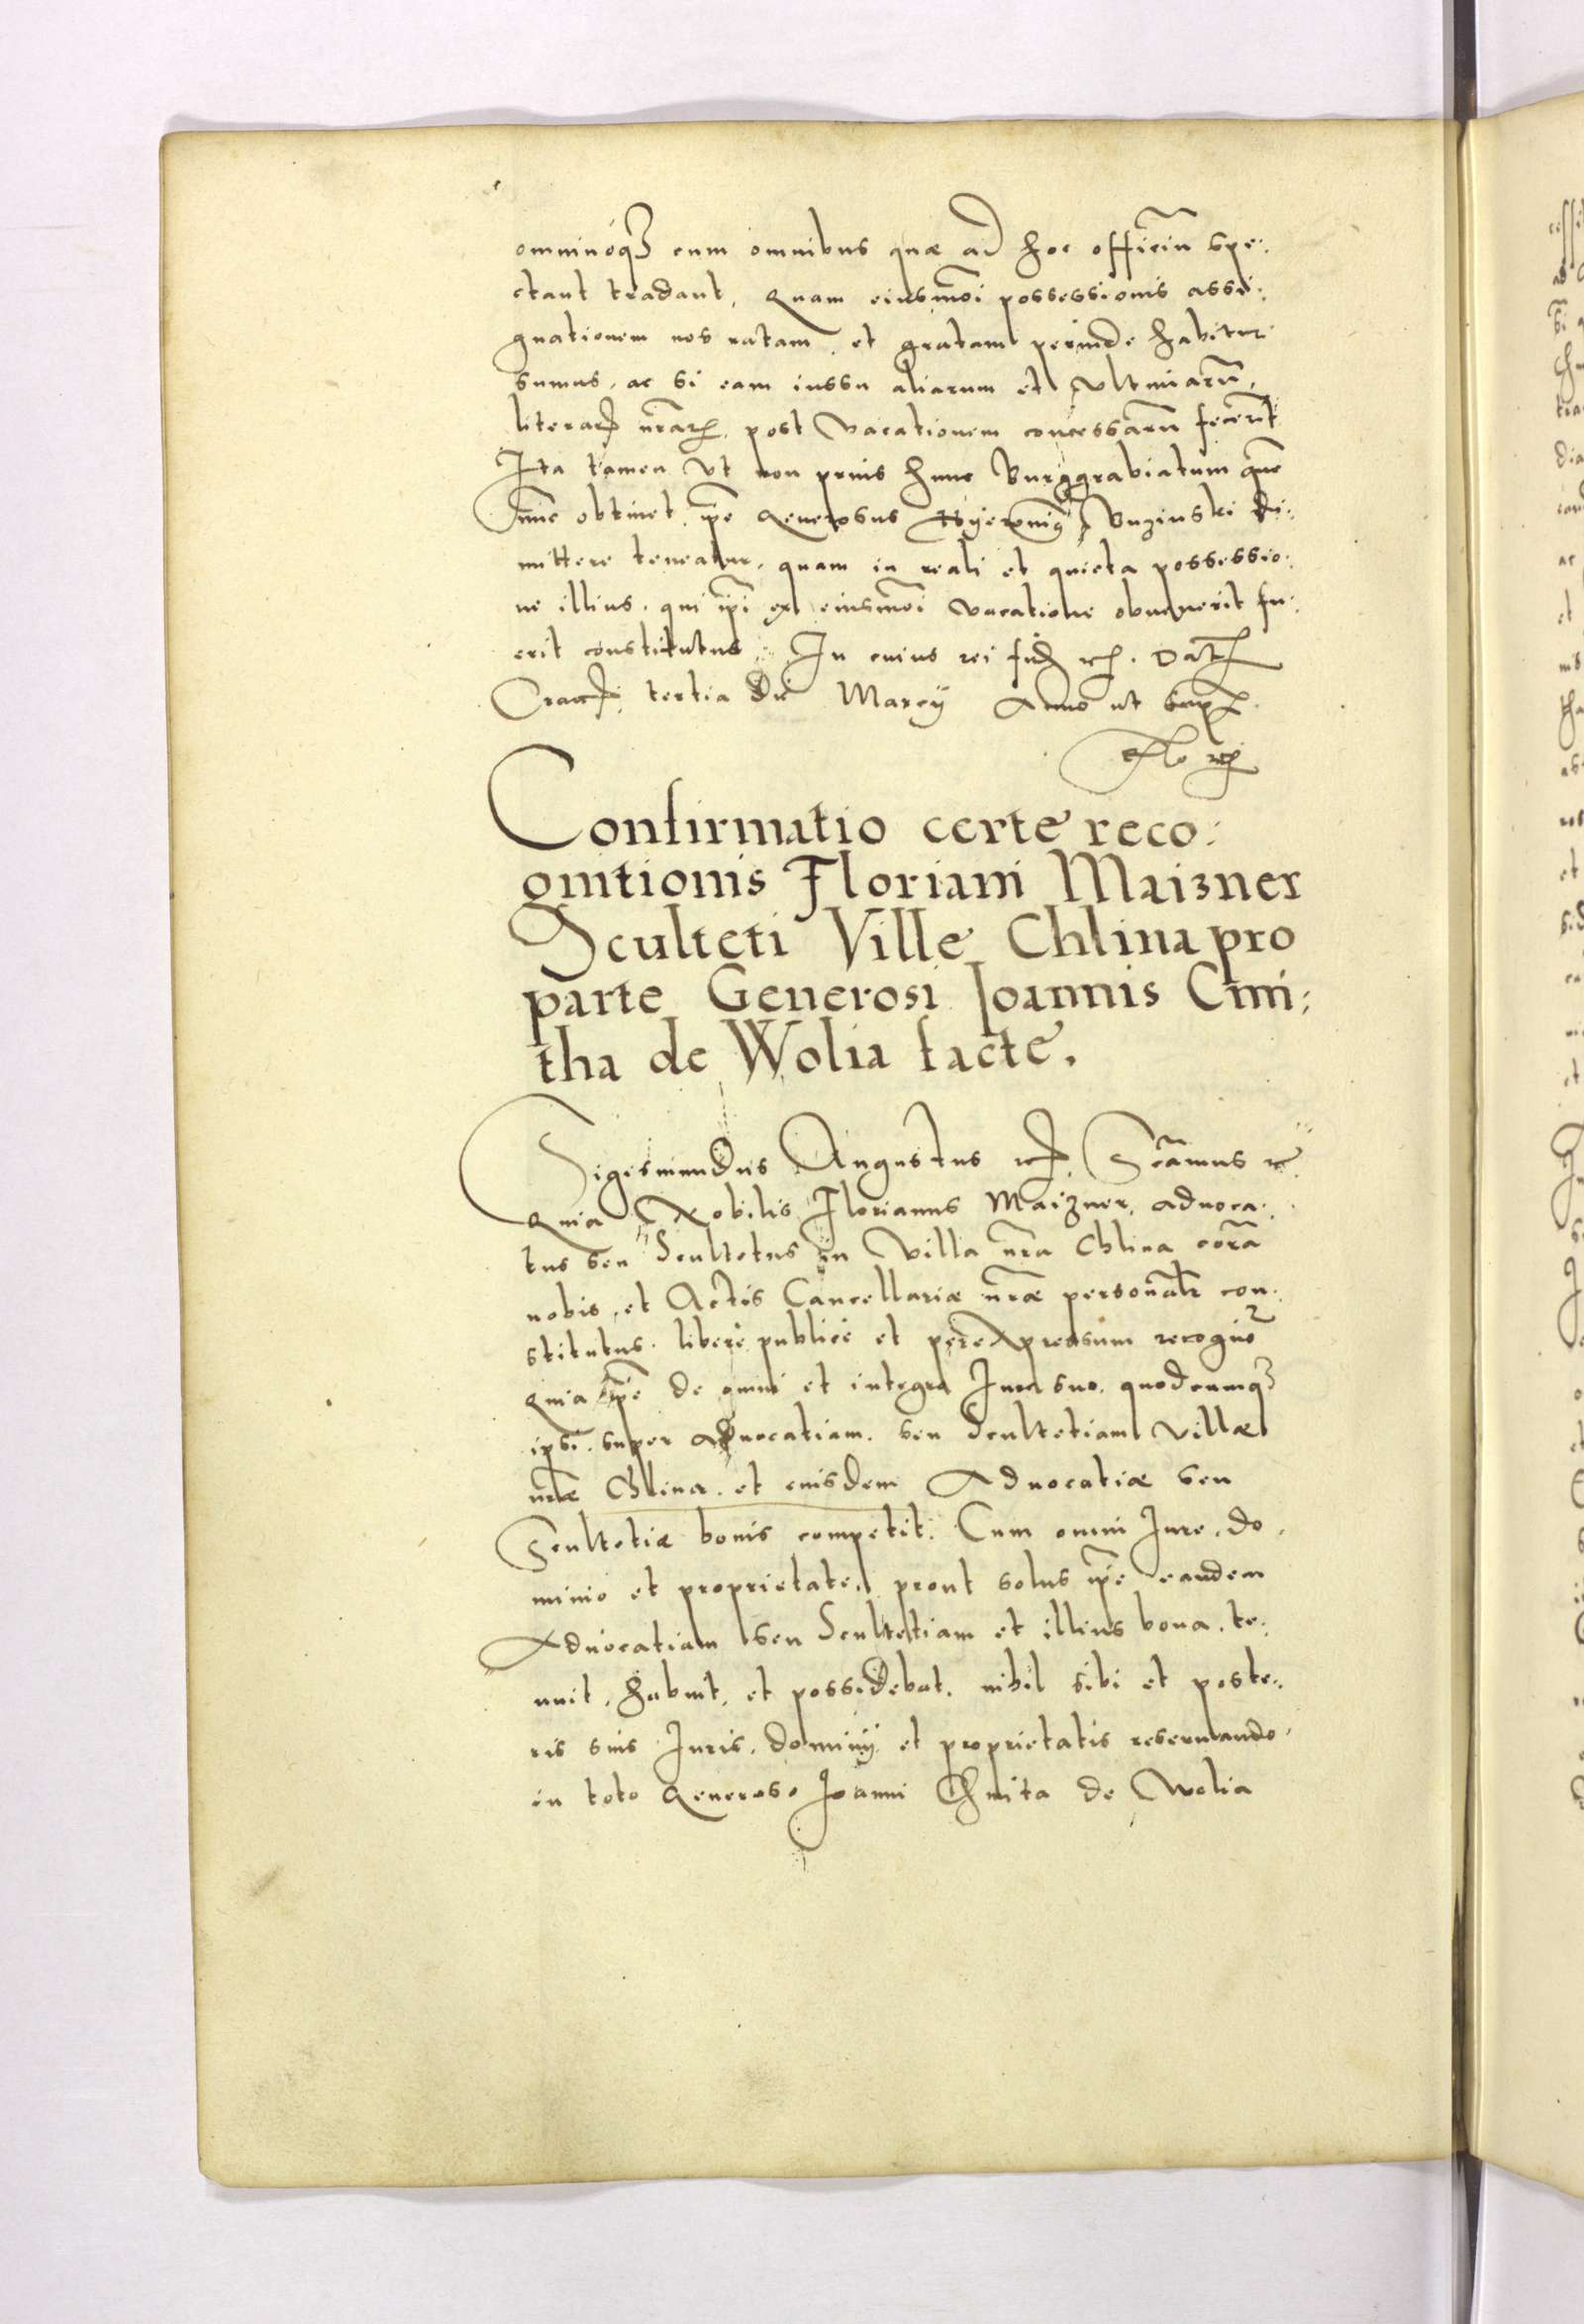 omninóq3 cum omnibus quæ ad hoc officiũ spe:
ctant tradant, Quam eiusmõi possessionis assi:
gnationem nos ratam, et gratam perinde habitur
sumus, ac si eam iussu aliarum et Vltimiarũ,
literarꝝ nr̃arꝝ, post vacationem concessarũ fecerĩt
Ita tamen Vt non prius hunc Burggrabiatum quẽ
nũc obtinet, ip̃e Generosus Hyeronimꝰ Buzinski di:
mittere teneatur, quam in reali et quieta possessio:
ne illius, qui ip̃i ex eiusmõi vacatione obuenerit fu:
erit constitutus. In cuius rei fidꝫ rcꝭ. Datꝭ
Cracꝭ, tertia die Marcy Anno ut supꝭ.
Confirmatio certe reco:
gnitionis Floriani Maizner
Sculteti Ville Chlina pro
parte Generosi Joannis Cmi:
tha de Wolia facte.
Sigismundus Augustus rcꝭ Scãmus rc
Quia Nobilis Florianus Maizner, aduoca:
tus seu Scultetus in Villa nr̃a Chlina corã
nobis, et Actis Cancellariæ nr̃æ personalr̃ con:
stitutus, liberè publicè et per expressum recognõ
Quia ip̃e de omni et integro Iure suo, quodcumq3
ipsi, super aduocatiam, seu Scultetiam Villæ
nr̃æ Chlina, et eiusdem Aduocatiæ seu
Scultetiæ bonis competit. Cum omni Iure, do
minio et proprietate, prout solus ip̃e eandem
Aduocatiam seu Scultetiam et illius bona, te:
nuit, habuit, et possidebat, nihil sibi et poste:
ris suis Iuris, dominij et proprietatis reseruando
in toto Generoso Joanni Chmita de Wolia